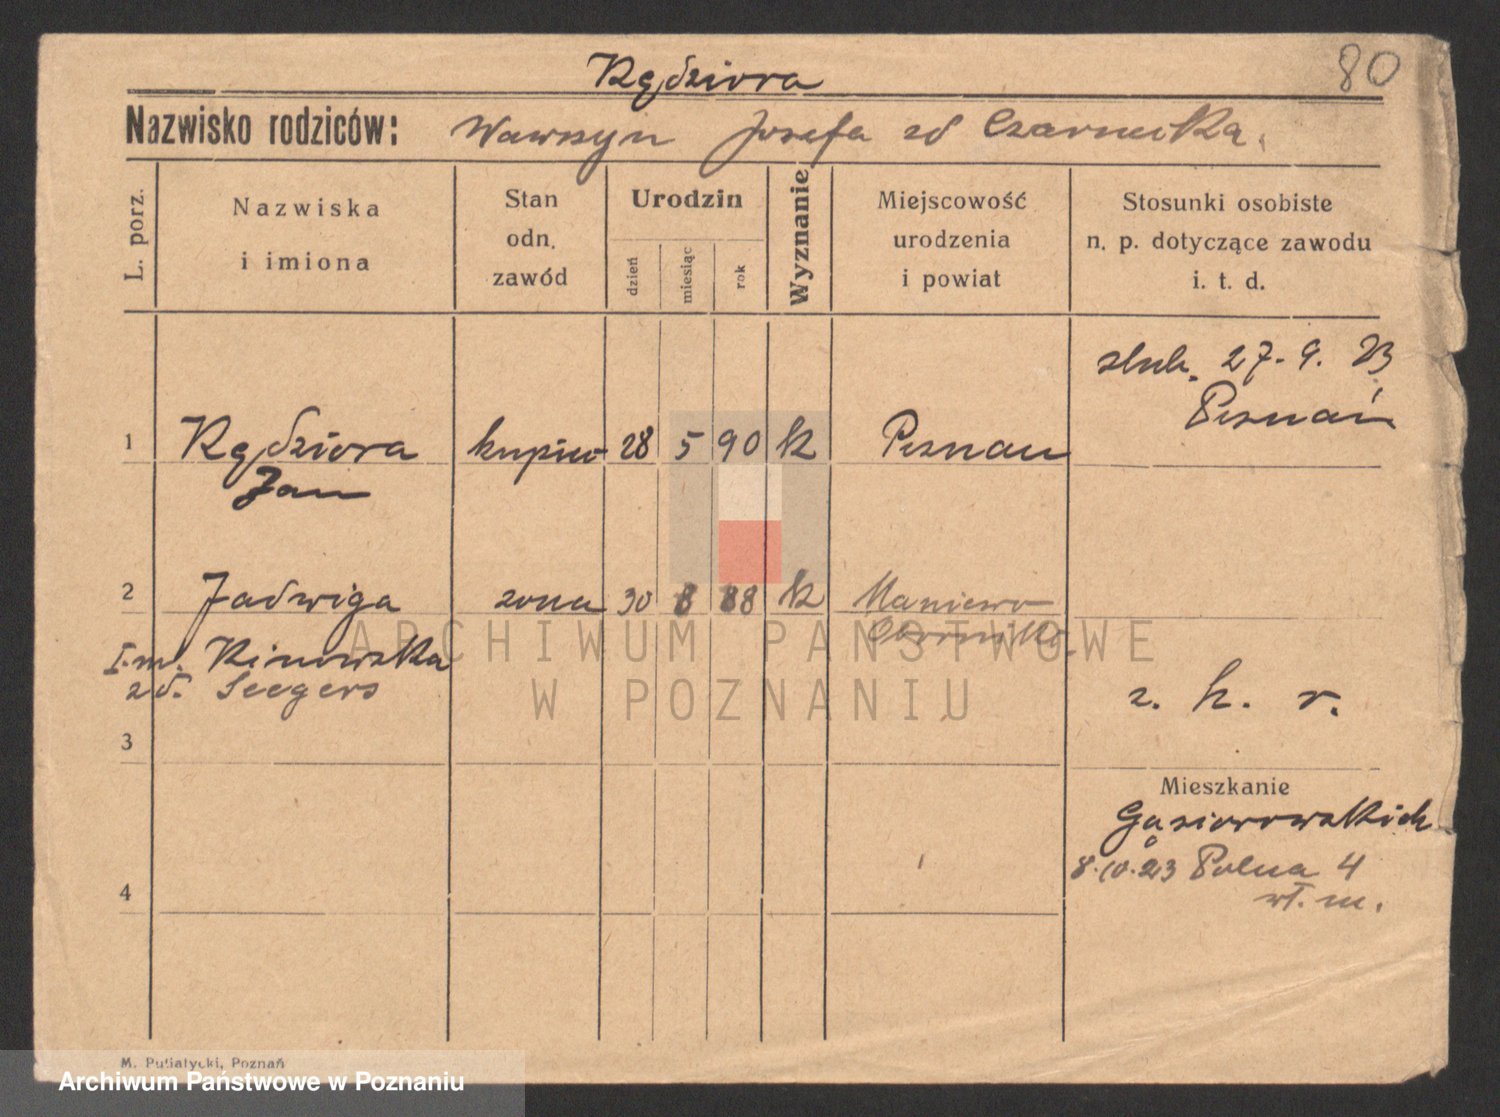 80
Kędziora
Nazwisko rodziców: Wawrzyn Józefa zd Czarnecka.
L. porz.
Nazwiska
i imiona
Stan
odn.
zawód
Urodzin
dzień
miesiąc
rok
Wyznanie
Miejscowość
urodzenia
i powiat
Stosunki osobiste
n. p. dotyczące zawodu
i. t. d.
ślub. 27. 9. 23
Poznań
1 Kędziora kupiec 28 5 90 k Poznań
Jan
2 Jadwiga żona 30 8 88 k Maniewo
Obornik
I.m. Kinowska
zd. Seegers
z. k. r.
3
Mieszkanie
Gąsiorowskich
8.10.23 Polna 4
wł. m.
4
M. Putiatycki, Poznań
ARCHIWUM PAŃSTWOWE
W POZNANIU
Archiwum Państwowe w Poznaniu